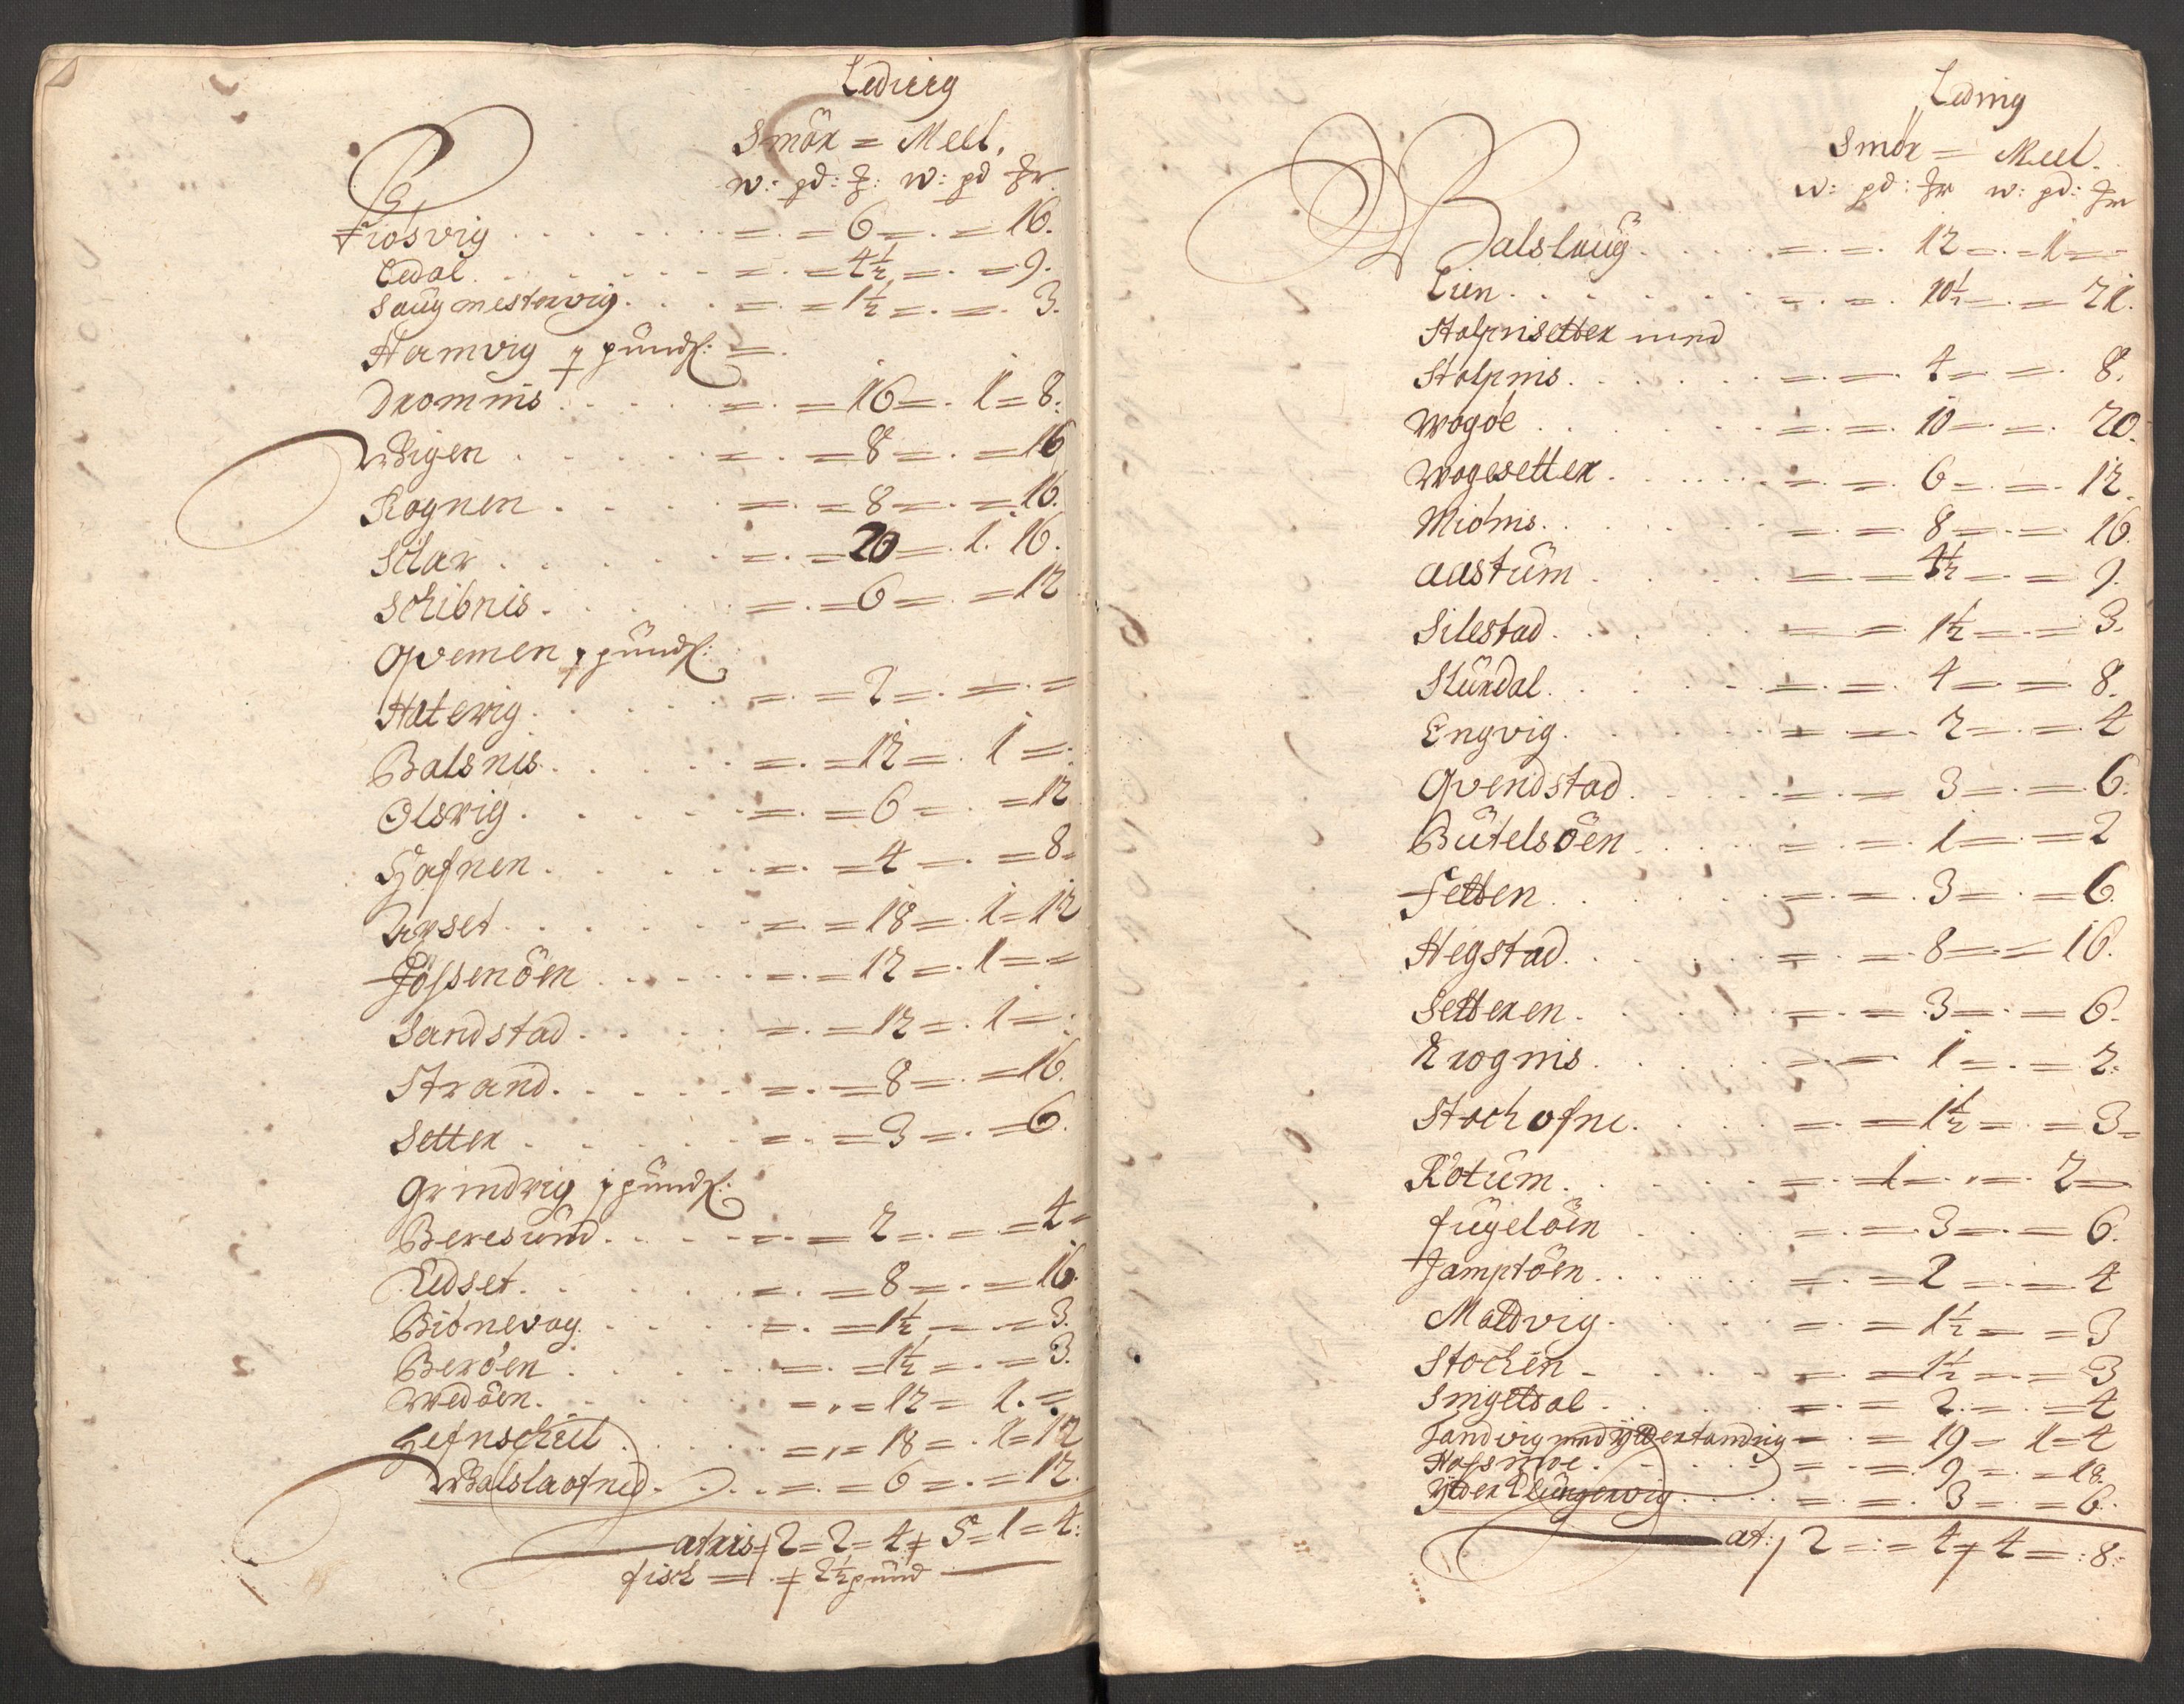 Leding
Smör = Meel.
w: pd: w: pd
Fiösvig . . . . . . =. = 6 =. = 16.
Eedal . . . . . . =. = 4½ =. = 9.
Saugmestervig . . . =. = 1½ =. = 3.
Hamvig pund
Drommis . . . . . =. = 16 =. 1 = 8.
Wigen . . . . . =. = 8 =. = 16
Kognen . . . . =. = 8 =. = 16.
Sclar . . . . . =. = 20 =. 1. 16.
Schibnis . . . . =. = 6 =. = 12
Qvemen pund
Hatevig . . . . =. = 2 =. =. =
Balsnis . . . . =. = 12 =. 1 =
Olsvig . . . . =. = 6 =. = 12
Hafnen . . . . =. = 4 =. = 8
Uyset . . . . =. = 18 =. 1 = 12
Jössenöen . . . =. = 12 =. 1 = =
Sandstad . . . =. = 12 =. 1 =
Strand . . . . =. = 8 =. = 16.
Setter . . . . =. = 3 =. = 6.
Grindvig pund
Beresund . . . =. = 2 =. = 4
Eidset . . . . =. = 8 =. = 16.
Biönevog . . . =. = 1½ =. = 3.
Beröen . . . . =. = 1½ =. = 3.
Wedöen . . . . =. = 12 = 1. =
Hefnschiel . . . =. = 18 =. 1 = 12
Walslaofned . . =. = 6 =. = 12.
2 = 2 = 4 5 = 1 = 4:
fisch = . 2½ pund
Leding
Smör = Meel.
w: pd: w: pd:
Walslaug . . . =. =. 12 =. = 1 =
Lien . . . . . =. =. 10½ =. = 21.
Stolpnisetter med
Stolpnis . . . . =. =. 4 =. =. 8.
Wogöe . . . . =. =. 10 =. =. 20.
Wogesetter . . . =. =. 6 =. =. 12.
Miönis . . . . =. = 8 =. = 16.
Aastum . . . . =. = 4½ =. = 9.
Silestad . . . . =. = 1½ =. = 3.
Slürdal . . . . =. =. 4 =. = 8.
Engvig . . . . =. =. 2 =. =. 4
Qvendstad . . . =. = 3 =. =. 6.
Bütelsöen . . . =. =. 1 =. = 2
Fetten . . . . =. =. 3 =. = 6.
Hegstad . . . . =. =. 8 =. = 16.
Setteren . . . . =. = 3 =. = 6.
Krognis . . . . =. = 1 =. = 2.
Stochofne . . . =. = 1½ =. = 3
Rotum . . . . =. = 1 =. =. 2
fugelöen . . . =. = 3 =. = 6.
Jamptöen . . . =. = 2 =. = 4
Mattvig . . . . =. = 1½ = = 3
Stochen . . . . =. = 1½ =. = 3
Singelsal . . . =. = 2. =. = 4
Tandvig med Ytter tandvig =. = 19 = 1 = 4
Hofsmoe . . . . =. =. 9 =. = 18.
Ytter Elungervig . . =. =. 3 =. = 6.
at: 2 =. = 4 4 =. 8.